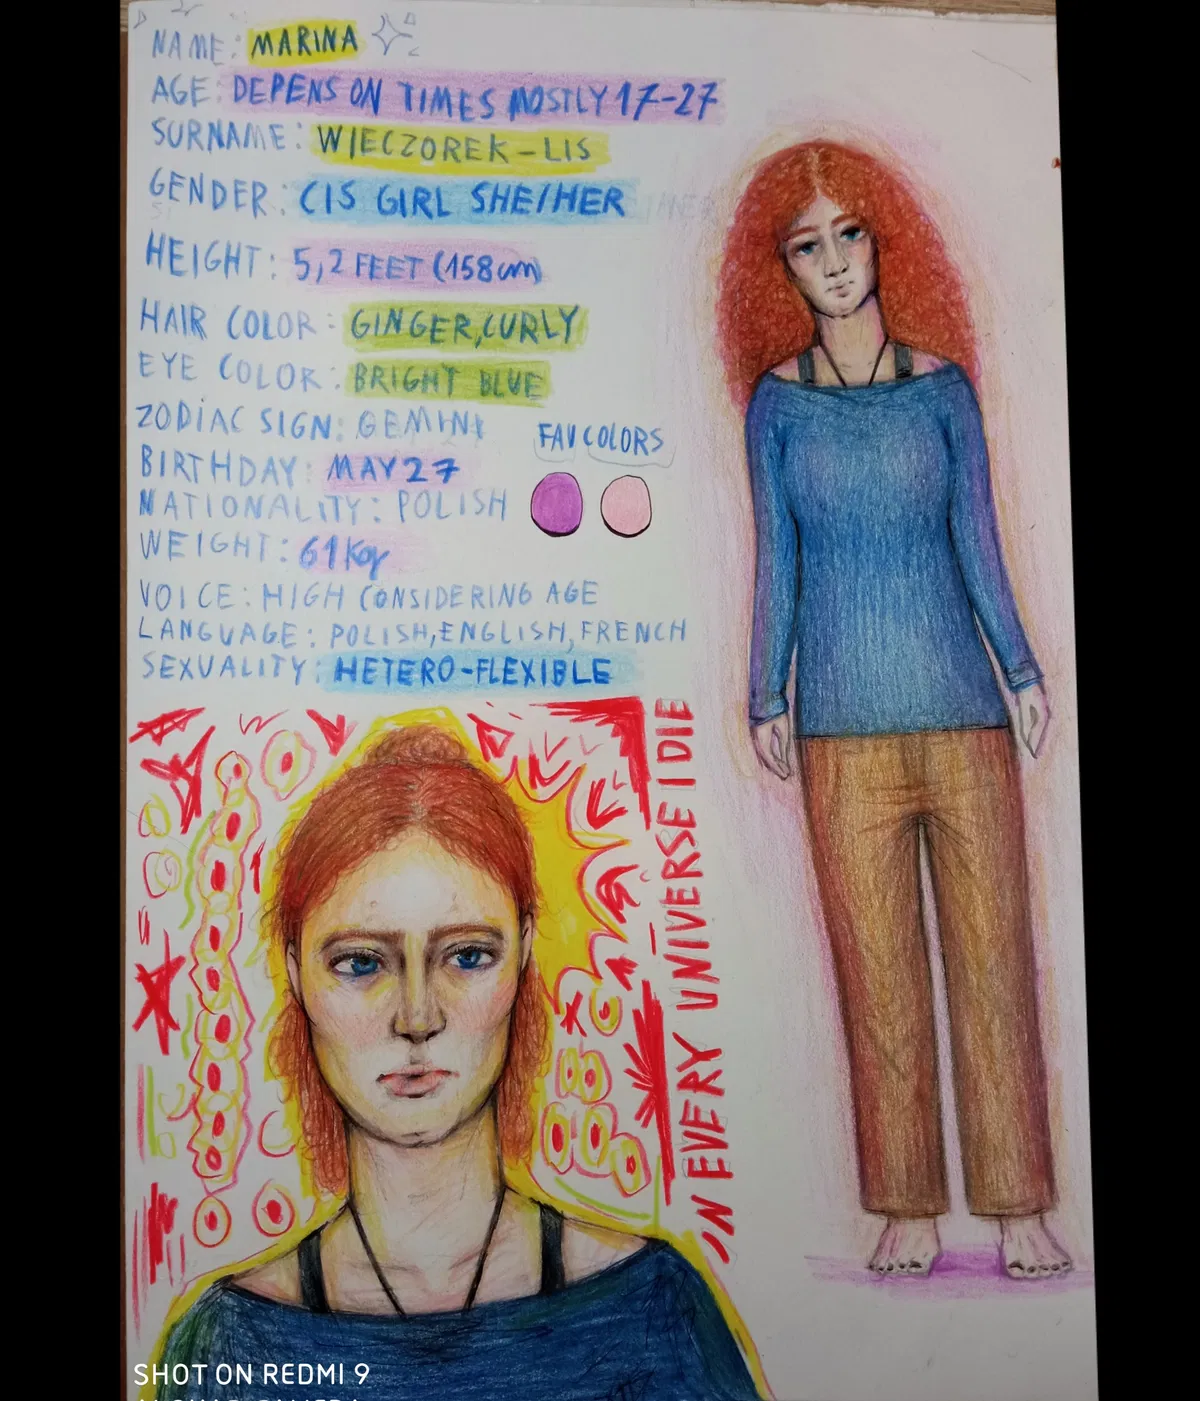 NAME: MARINA
AGE: DEPENS ON TIMES MOSTLY 17-27
SURNAME: WIECZOREK-LIS
GENDER: CIS GIRL SHE/HER
HEIGHT: 5,2 FEET (158cm)
HAIR COLOR: GINGER, CURLY
EYE COLOR: BRIGHT BLUE
ZODIAC SIGN: GEMINI
BIRTHDAY: MAY 27
NATIONALITY: POLISH
WEIGHT: 61Kg
VOICE: HIGH CONSIDERING AGE
LANGUAGE: POLISH, ENGLISH, FRENCH
SEXUALITY: HETERO-FLEXIBLE
FAV COLORS
IN EVERY UNIVERSE I DIE
SHOT ON REDMI 9